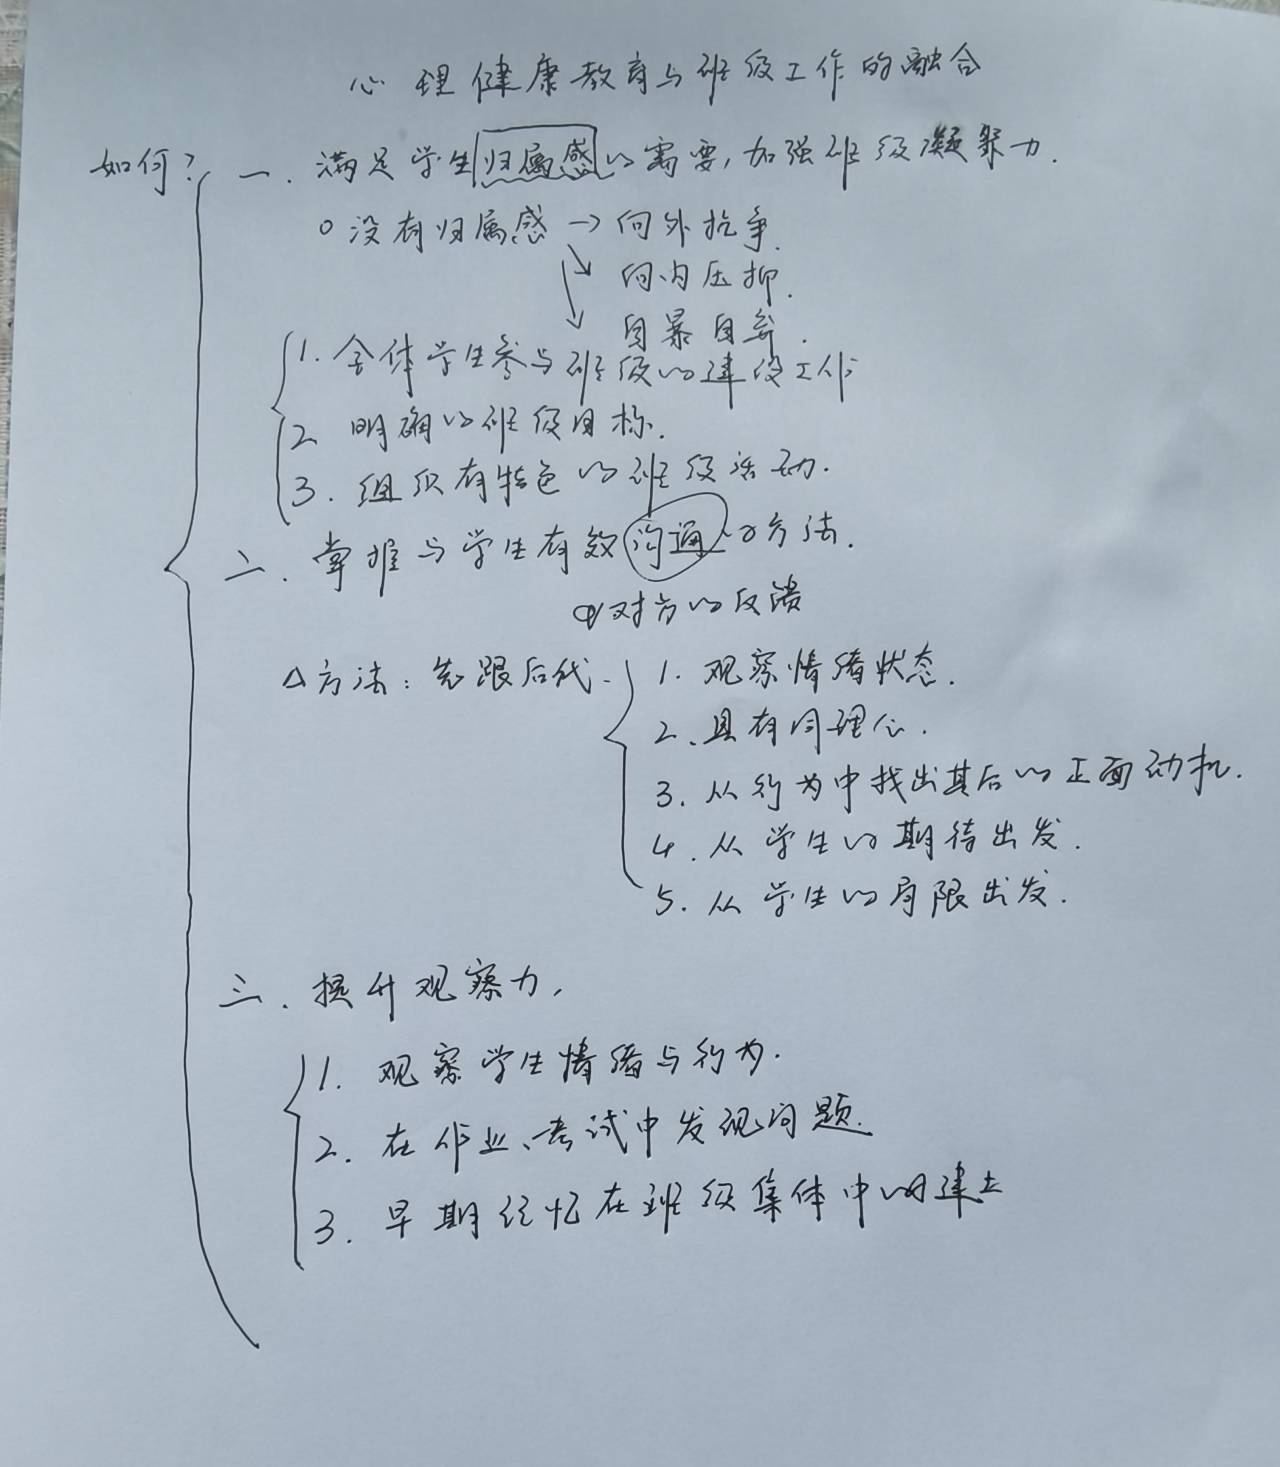 心理健康教育与班级工作的融合
如何？
一. 满足学生归属感的需要,加强班级凝聚力.
○没有归属感 → 向外抗争.
↘ 向内压抑.
↓ 自暴自弃.
1. 全体学生参与班级的建设工作
2 明确的班级目标.
3. 组织有特色的班级活动.
二. 掌握与学生有效沟通的方法.
对方的反馈
△方法: 先跟后代.
1. 观察情绪状态.
2. 具有同理心.
3. 从行为中找出其后的正面动机.
4. 从学生的期待出发.
5. 从学生的局限出发.
三. 提升观察力,
1. 观察学生情绪与行为.
2. 在作业、考试中发现问题.
3. 早期经忆在班级集体中的建立